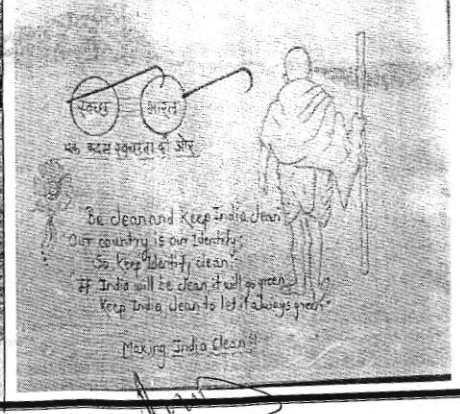 स्वच्छ भारत
एक कदम स्वच्छता की ओर
Be clean and Keep India clean
Our country is our Identity
So Keep Identify clean
If India will be clean it will go green
Keep India clean to let it always green
Making India Clean!!